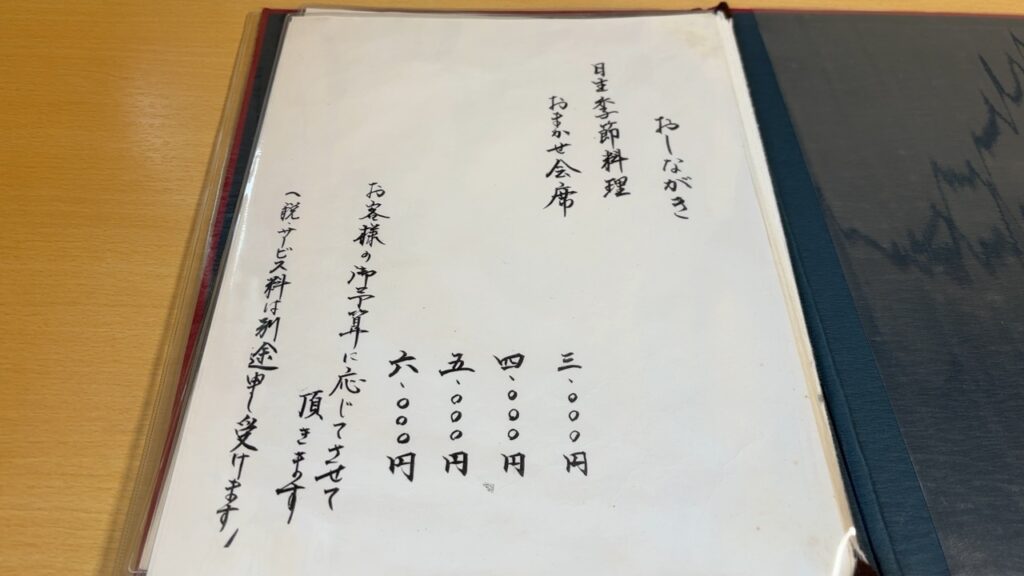 おしながき
日生季節料理
おまかせ会席
三、〇〇〇円
四、〇〇〇円
五、〇〇〇円
六、〇〇〇円
お客様の御予算に応じてさせて
頂きます
(税・サービス料は別途申し受けます)